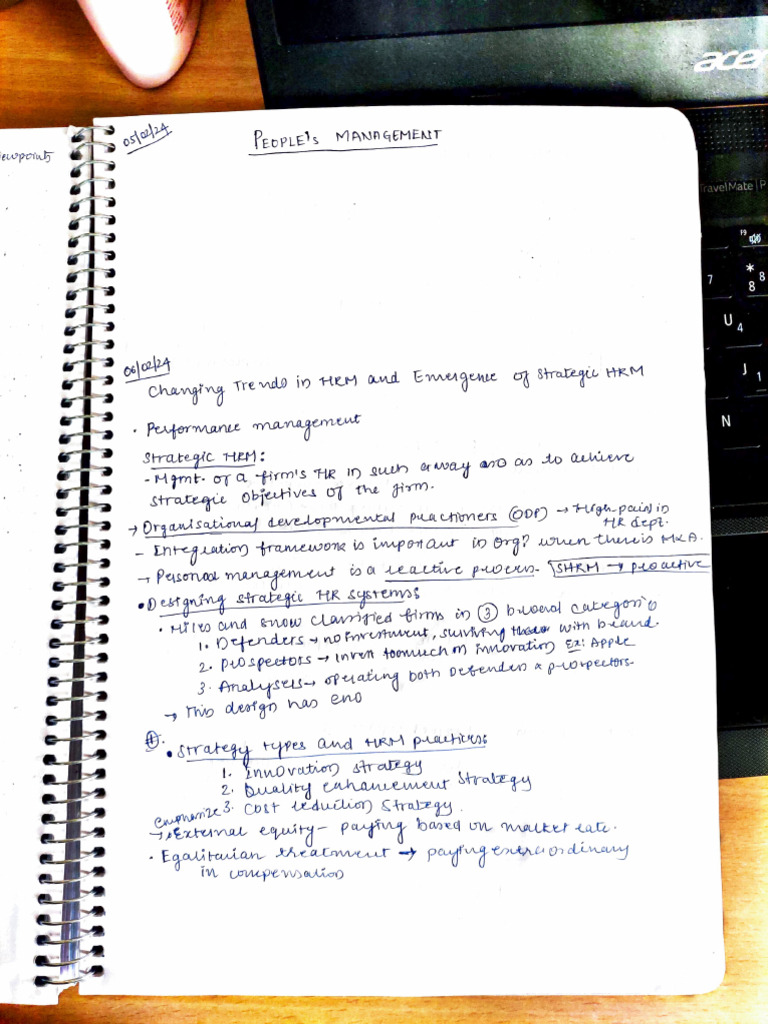 acer
05/02/24
PEOPLE'S MANAGEMENT
ewpoints
TravelMate | P
F9
7
*
8
8
U
4
J
1
N
06/02/24
Changing Trends in HRM and Emergence of Strategic HRM
• Performance management
Strategic HRM:
- Mgmt. of a firm's HR in such a way so as to achieve
strategic objectives of the firm.
→ Organisational developmental practioners (ODP) → High paid in
HR dept.
- Integration framework is important in org? when there is M&A.
→ Personal management is a reactive process. SHRM → proactive
• Designing strategic HR systems:
• Miles and Snow classified firms in 3 broad categories
1. Defenders → no investment, surviving with brand.
2. Prospectors → invest too much on innovation Ex: Apple
3. Analysers → operating both Defenders & prospectors.
→ This design has end
• Strategy types and HRM practices:
1. Innovation strategy
2. Quality enhancement Strategy
3. Cost reduction Strategy.
emphasize
→ External equity - paying based on market rate.
• Egalitarian treatment → paying extraordinary
in compensation